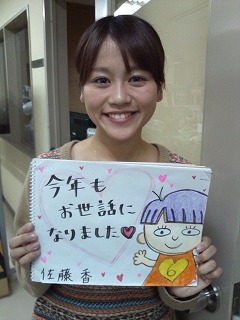 今年も
お世話に
なりました♥
佐藤 香
6